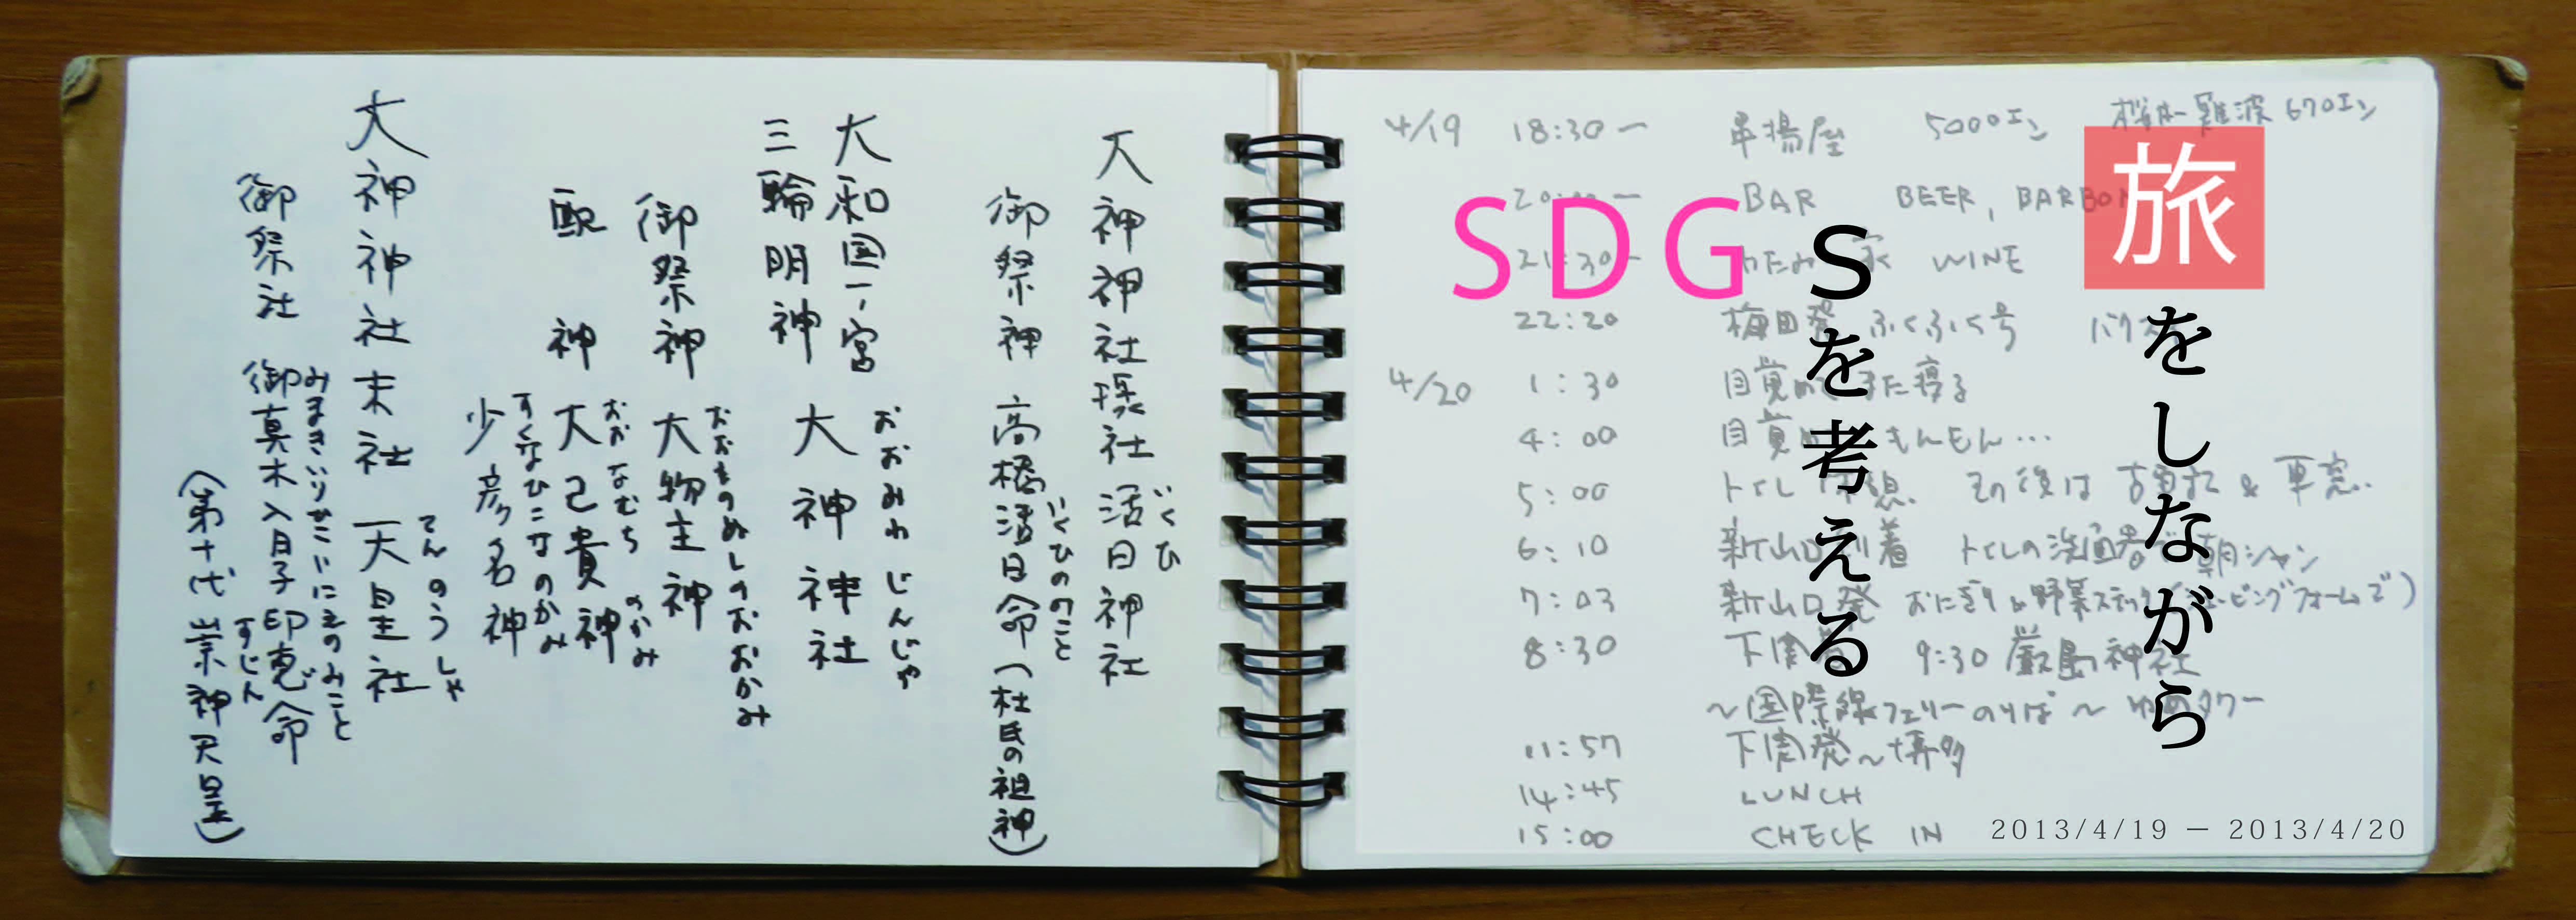 旅をしながら
SDGSを考える
4/19 18:30〜 串揚屋 5000エン 難波 670エン
BAR BEER, BARBON
21:30〜 わたみん家 WINE
22:20 梅田発 ふくふく号 バクスイ
4/20 1:30 目覚めてまた寝る
4:00 目覚め もんもん…
5:00 トイレ休憩 その後は 古事記 & 車窓..
6:10 新山口到着 トイレの洗面器で朝シャン
7:03 新山口発 おにぎり&野菜スティック
8:30 下関着 9:30 厳島神社
〜国際線フェリーのりば〜ゆめタワー
11:57 下関発〜博多
14:45 LUNCH
15:00 CHECK IN
2013/4/19 − 2013/4/20
大神神社摂社 活日神社
いくひ
御祭神 高橋活日命(杜氏の祖神)
いくひのみこと
大和国一ノ宮
三輪明神 大神神社
おおみわ じんじゃ
御祭神 大物主神
おおものぬしのおおかみ
配神 大己貴神
おおなむちのかみ
少彦名神
すくなひこなのかみ
大神神社末社 天皇社
てんのうしゃ
御祭社 御真木入日子印恵命
みまきいりひこいにえのみこと
(第十代 崇神天皇)
すじん